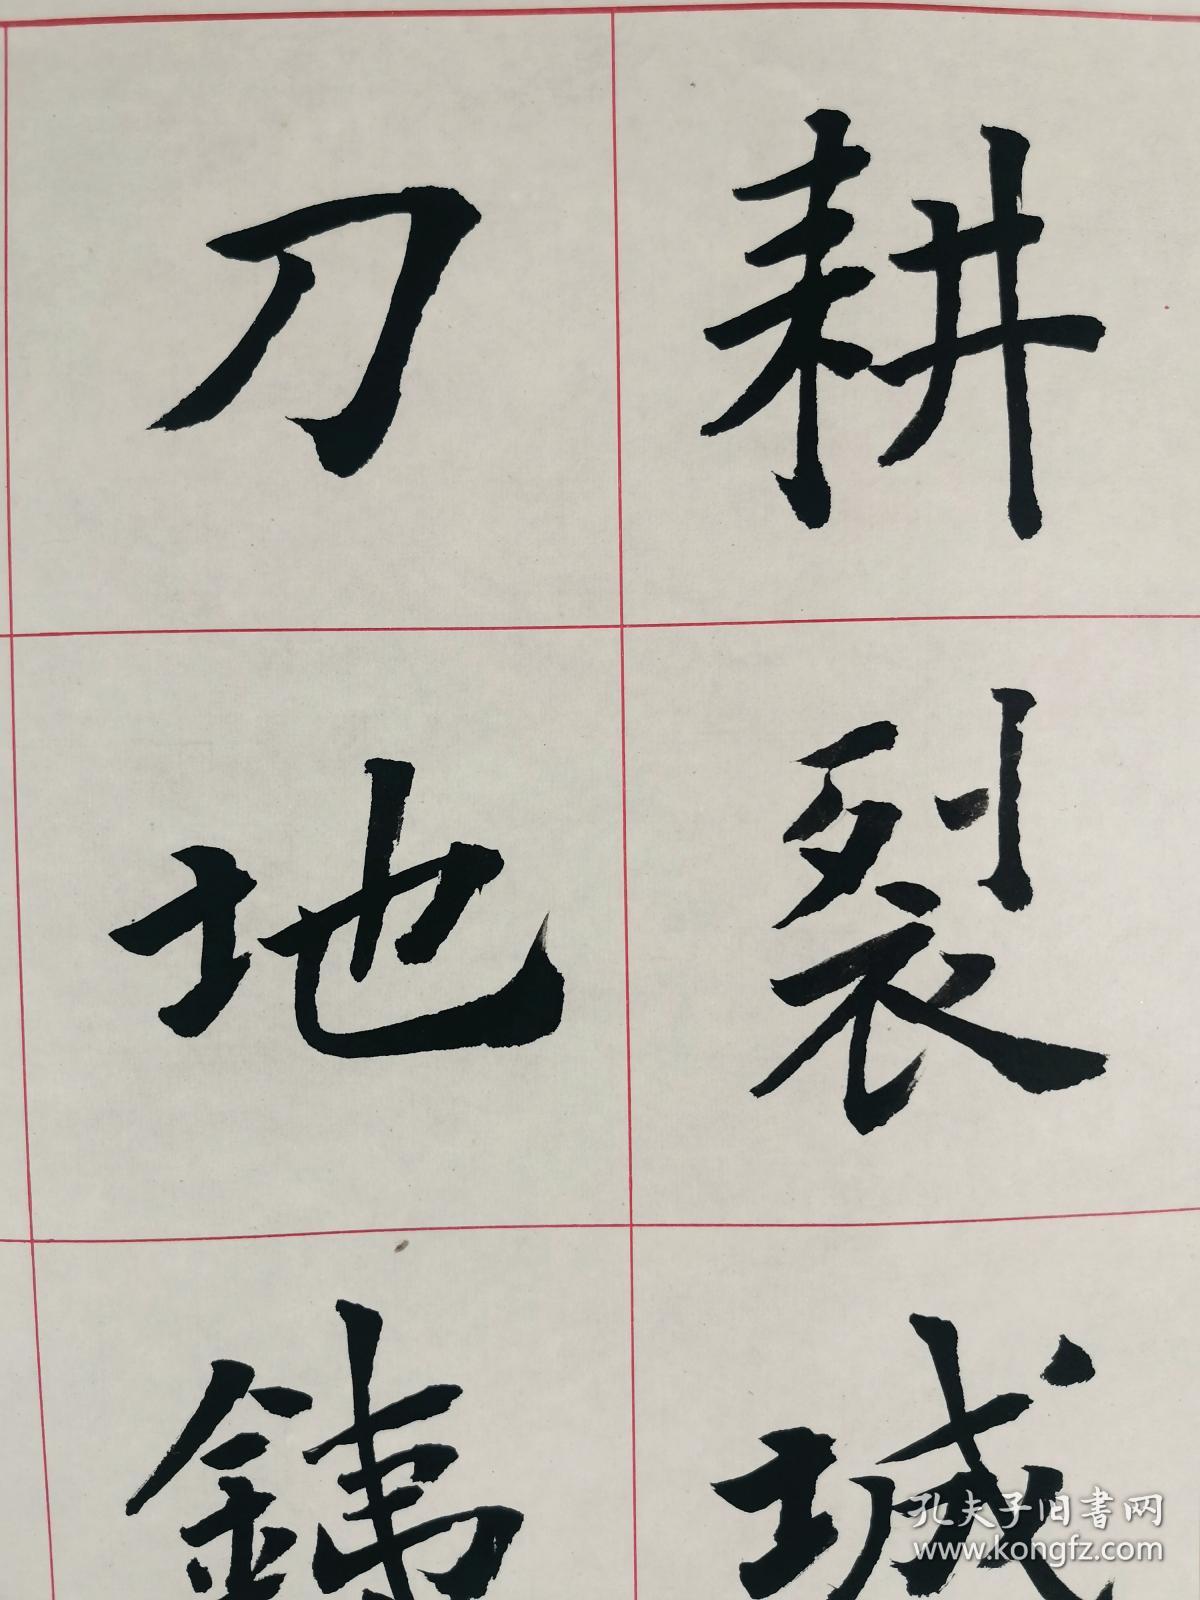 耕裂城
刀地
孔夫子旧書网
www.kongfz.com